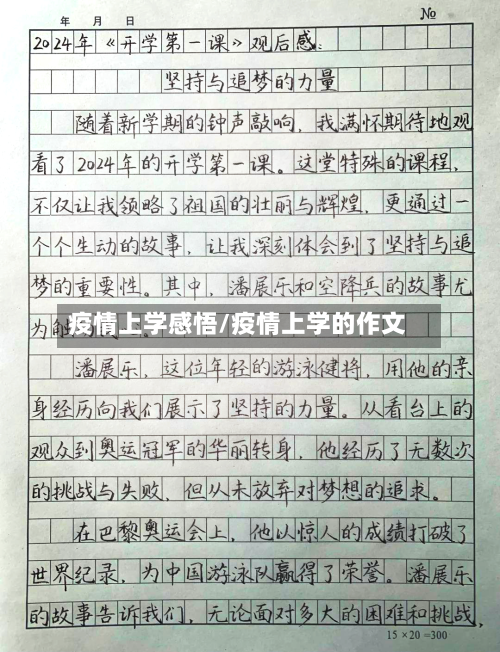 年 月 日 №
2024年《开学第一课》观后感:
坚持与追梦的力量
随着新学期的钟声敲响,我满怀期待地观
看了2024年的开学第一课。这堂特殊的课程,
不仅让我领略了祖国的壮丽与辉煌,更通过一
个个生动的故事,让我深刻体会到了坚持与追
梦的重要性。其中,潘展乐和空降兵的故事尤
为
疫情上学感悟/疫情上学的作文
潘展乐,这位年轻的游泳健将,用他的亲
身经历向我们展示了坚持的力量。从看台上的
观众到奥运冠军的华丽转身,他经历了无数次
的挑战与失败,但从未放弃对梦想的追求。
在巴黎奥运会上,他以惊人的成绩打破了
世界纪录,为中国游泳队赢得了荣誉。潘展乐
的故事告诉我们,无论面对多大的困难和挑战,
15×20=300